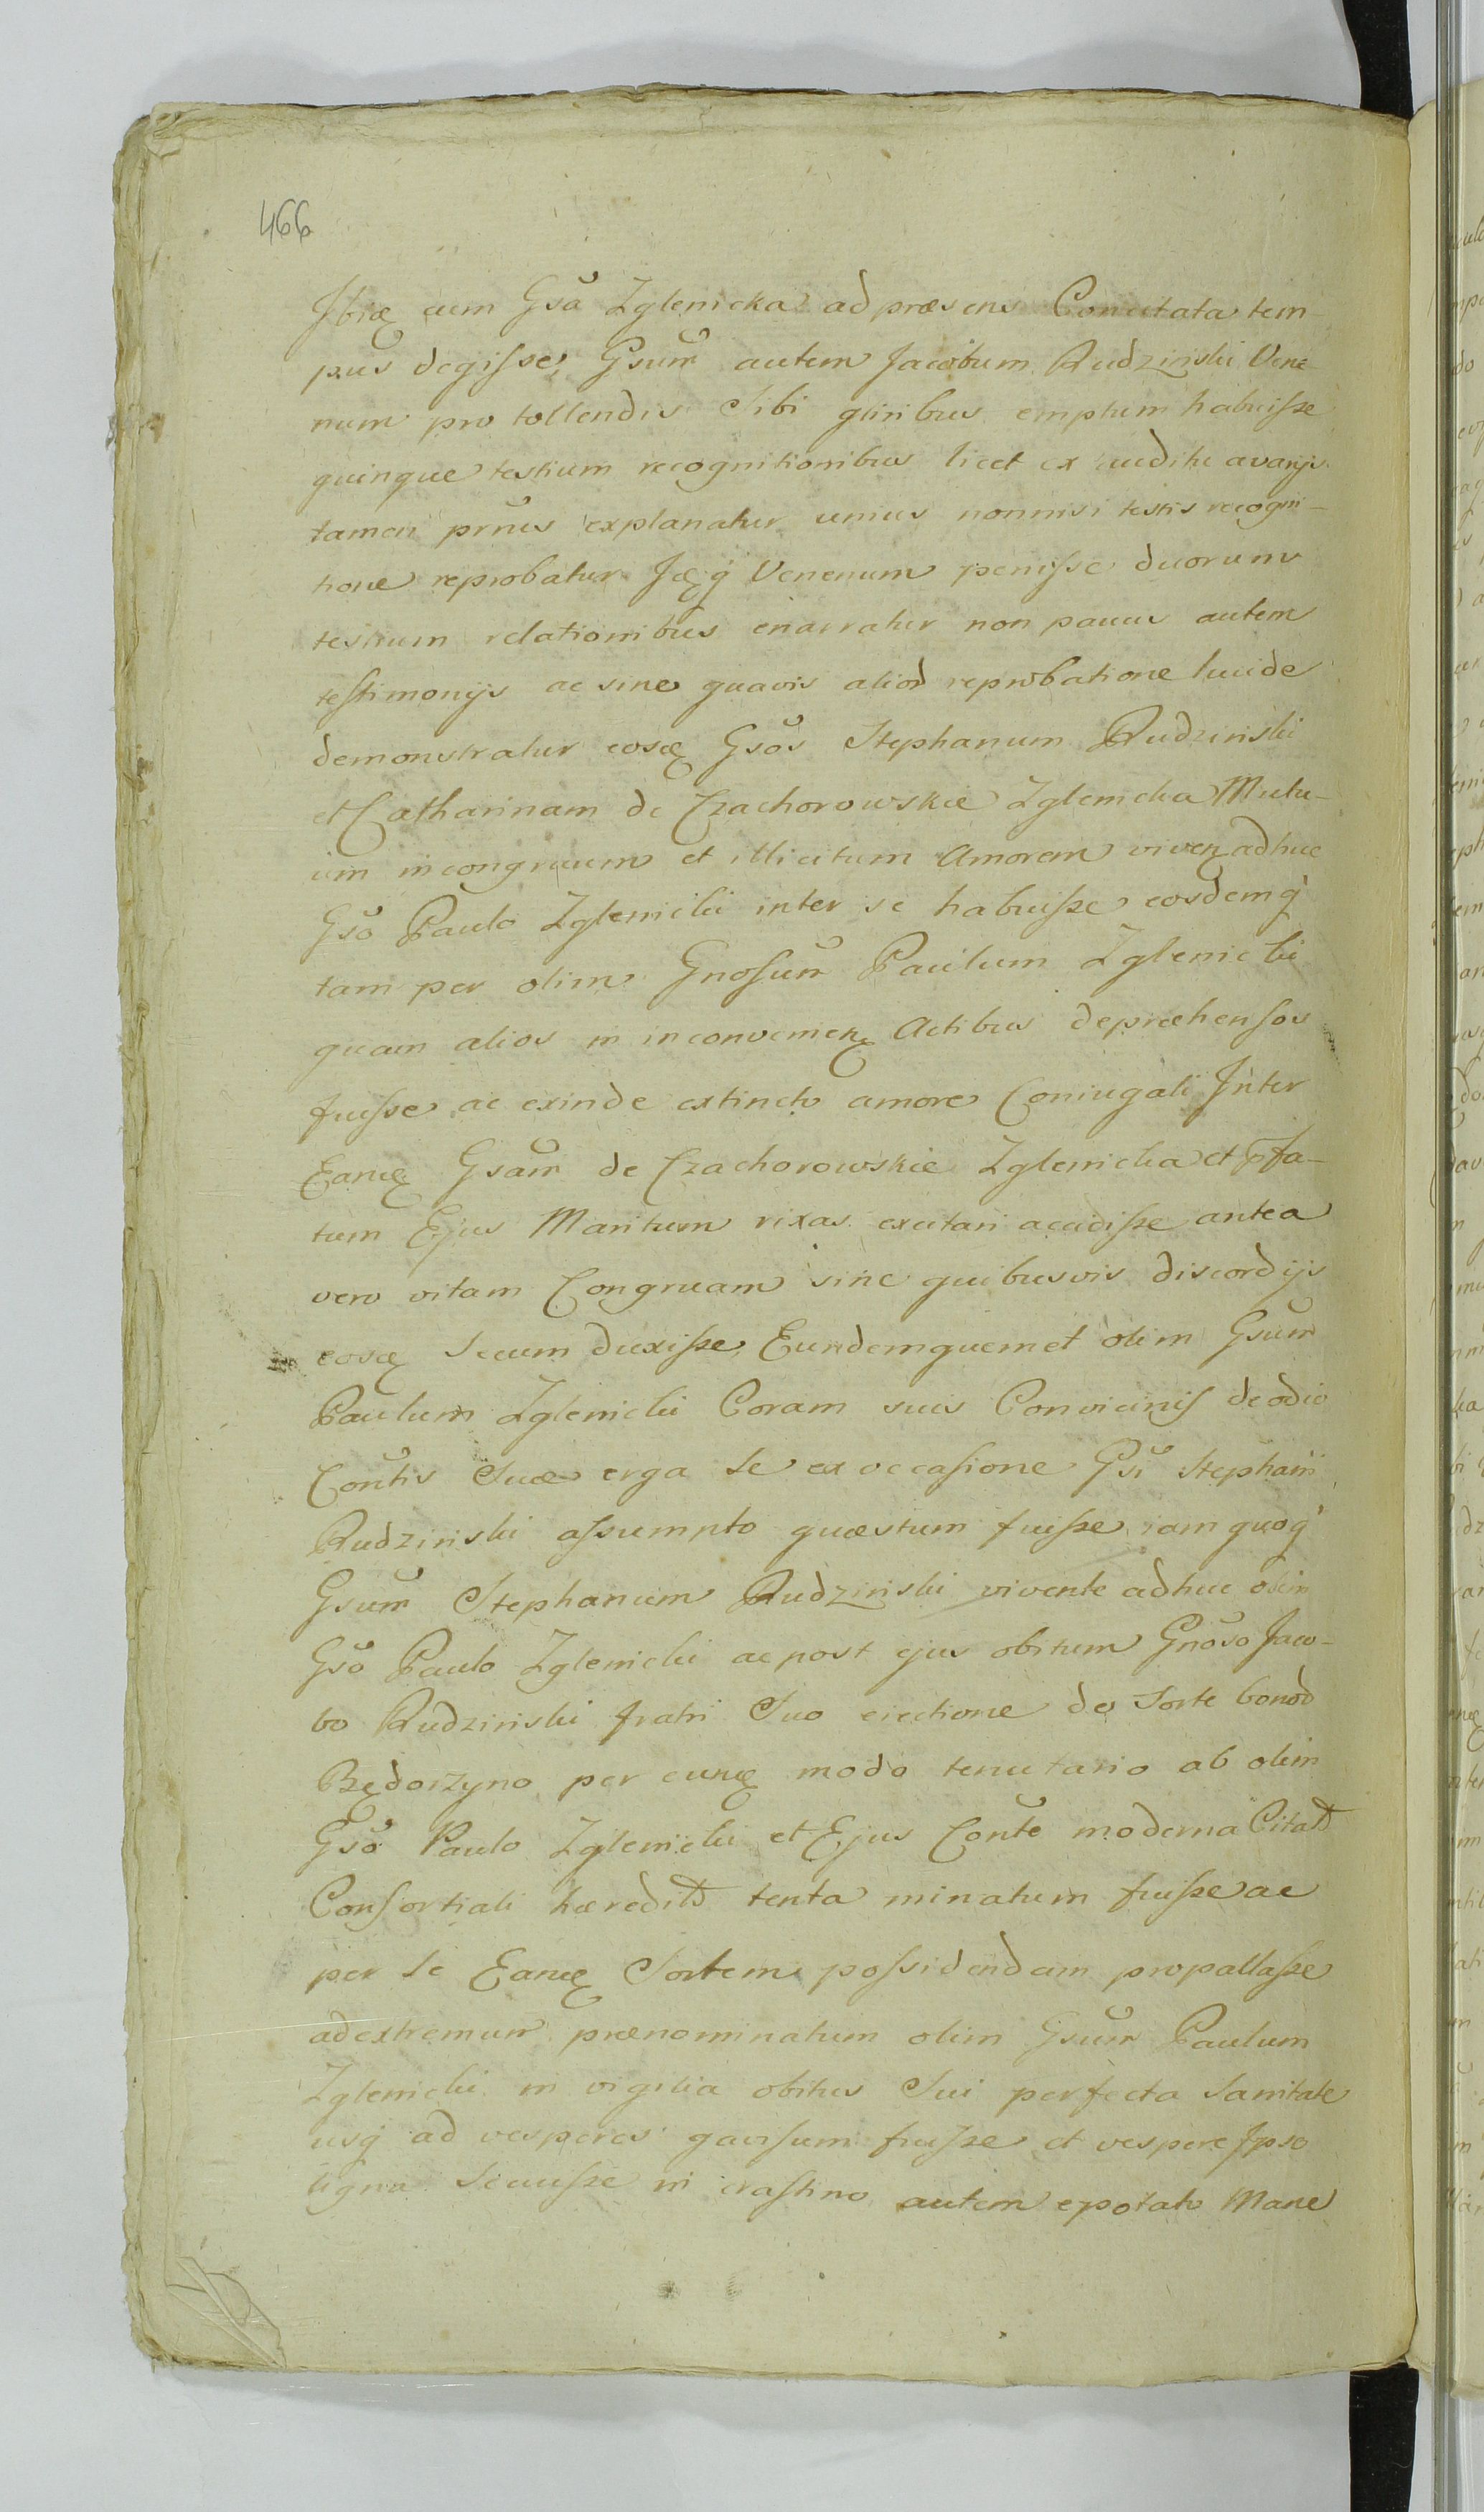 466
Ibid cum Gsa Zglenicka ad præsens Concitata tem-
pus degisse, Gsum autem Jacobum Rudzinski Vene-
num pro tollendis Sibi gliribus emptum habuisse
quinque testium recognitionibus licet ex auditu
tamen prius explanatur unius nonnisi testis recogni-
tione reprobatur Venenum penes se duorum
testium relationibus enarratur non paucis autem
testimonijs ac sine quavis aliod reprobatione lucide
demonstratur eosd Gsos Stephanum Rudzinski
et Catharinam de Czachorowskie Zglenicka Mutu-
um incongruum et illicitum Amorem viven adhuc
Gso Paulo Zglenicki inter se habuisse eosdemq
tam per olim Gnosum Paulum Zglenicki
quam alios in inconvenien Actibus depræhensos
fuisse ac exinde extincto amore Coniugali Inter
Eand Gsam de Czachorowskie Zglenicka et pfa-
tum Ejus Maritum rixas excitari accidisse antea
vero vitam Congruam sine quibusvis discordijs
eosd Secum duxisse, Eundemquemet olim Gsum
Paulum Zglenicki Coram suis Convicinis de odio
Contis Suæ erga Se ex occasione Gsi Stephani
Rudzinski assumpto quæstum fuisse iam quoq
Gsum Stephanum Rudzinski vivente adhuc olim
Gso Paulo Zglenicki ac post ejus obitum Gnoso Jaco-
bo Rudzinski fratri Suo eiectione de Sorte bonod
Będorzyno per eund modo tenutario ab olim
Gso Paulo Zglenicki et Ejus Conte moderna Citat
Consortiali hæredit tenta minatum fuisse ac
per Se Eand Sortem possidendam propallasse
ad extremum prænominatum olim Gsum Paulum
Zglenicki in vigilia obitus Sui perfecta Sanitate
usq ad vesperes gavisum fuisse et vespere Ipso
ligna Secuisse in crastino autem epotato Mane